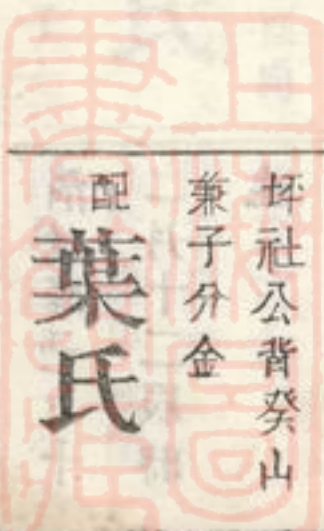 坪社公背癸山
兼子分金
配葉氏